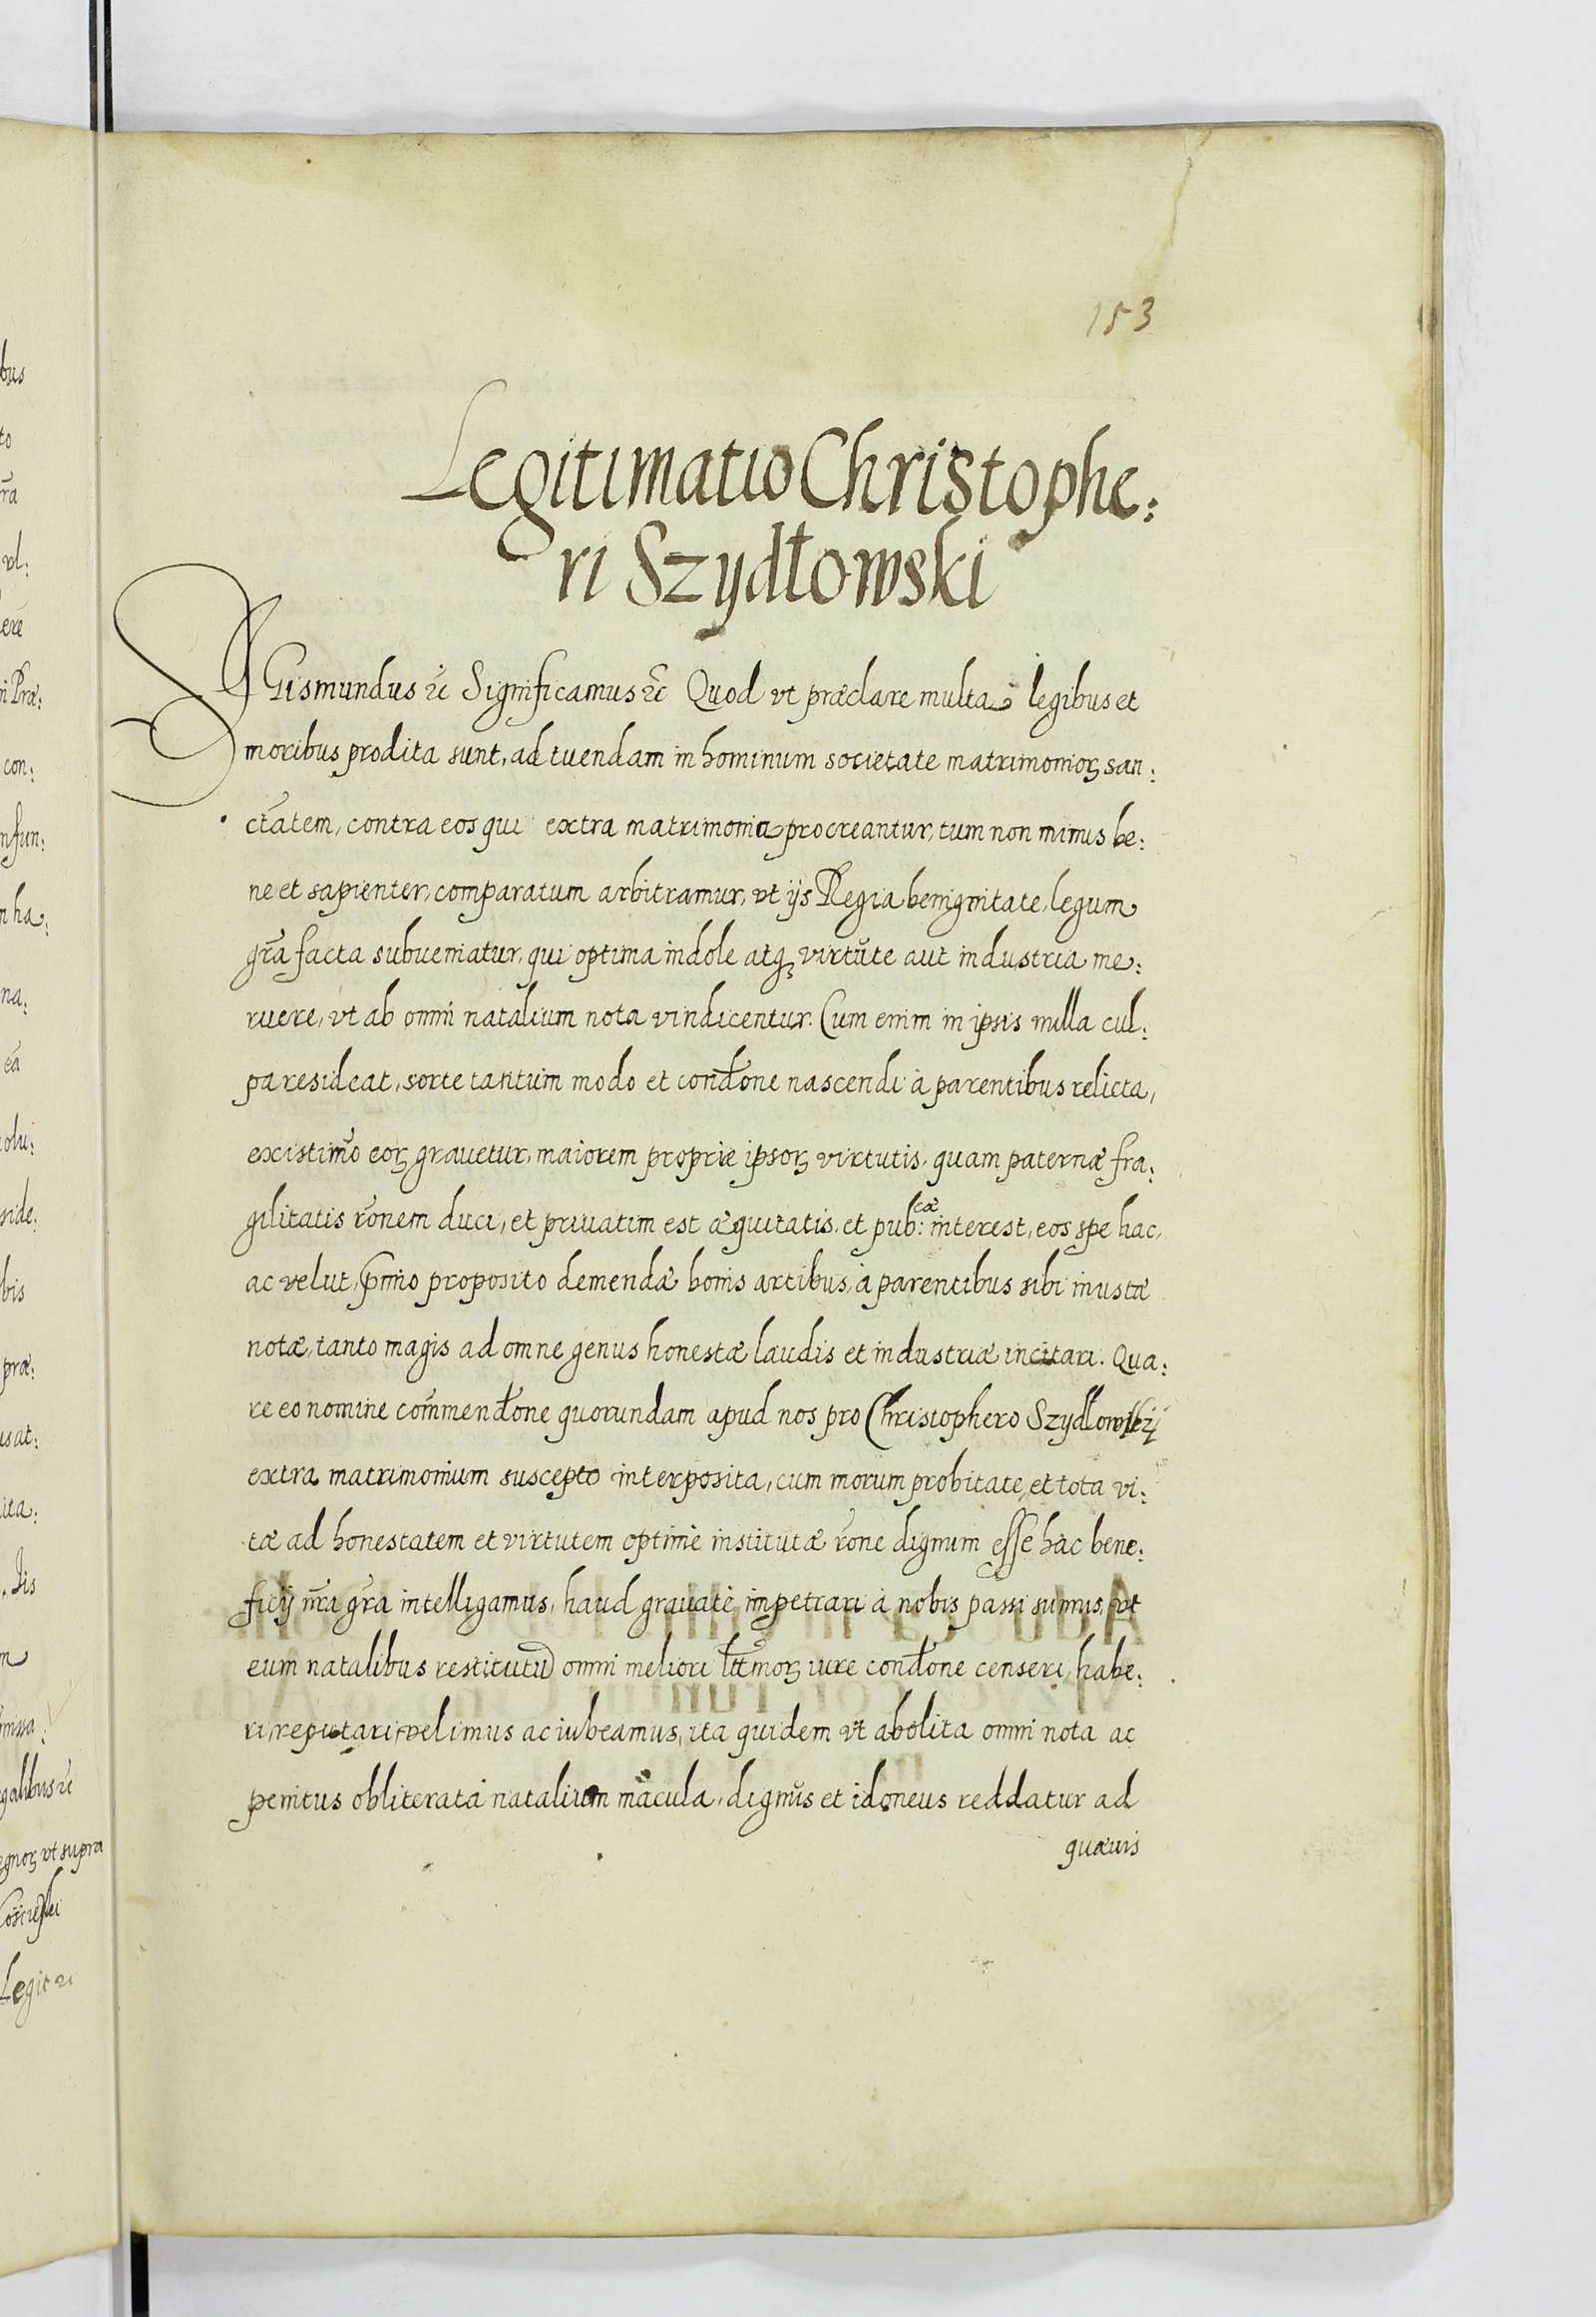 153
Legitimatio Christophe:
ri Szydłowski
SIGismundus &c Significamus &c Quod vt præclare multa legibus et
moribus prodita sunt, ad tuendam in hominum societate matrimonioꝝ san:
ctãtem, contra eos qui extra matrimonia procreantur, tum non minus be:
ne et sapienter, comparatum arbitramur, vt ijs Regia benignitate, legum
gr̃a facta subueniatur, qui optima indole atq̨ virtute aut industria me:
ruere, vt ab omni natalium nota vindicentur. Cum enim in ipsis nulla cul:
pa resideat, sorte tantum modo et condõne nascendi à parentibus relicta,
existimõ eoꝝ grauetur, maiorem proprie ipsoꝝ virtutis, quam paternæ fra:
gilitatis rõnem duci, et priuatim est æquitatis, et pub:cæ interest, eos spe hac,
ac velut, p̃mio proposito demendæ bonis artibus, à parentibus sibi inustæ
notæ, tanto magis ad omne genus honestæ laudis et industriæ incitari. Qua:
re eo nomine com̃endõne quorundam apud nos pro Christophero Szydłowskij
extra matrimonium suscepto interposita, cum morum probitate, et tota vi:
tæ ad honestatem et virtutem optimè institutæ rõne dignum esse hàc bene:
ficij nr̃i gr̃a intelligamus, haud grauatè impetrari à nobis passi sumus, vt
eum natalibus restitutũ omni meliori ltt̃moꝝ iure condõne censeri, habe:
ri, reputari, velimus ac iubeamus, ita quidem vt abolita omni nota ac
penitus obliterata natalium macula, dignus et idoneus reddatur ad
quæuis
bus
to
vl:
con:
na:
side:
bis
præ:
ita:
vt supra